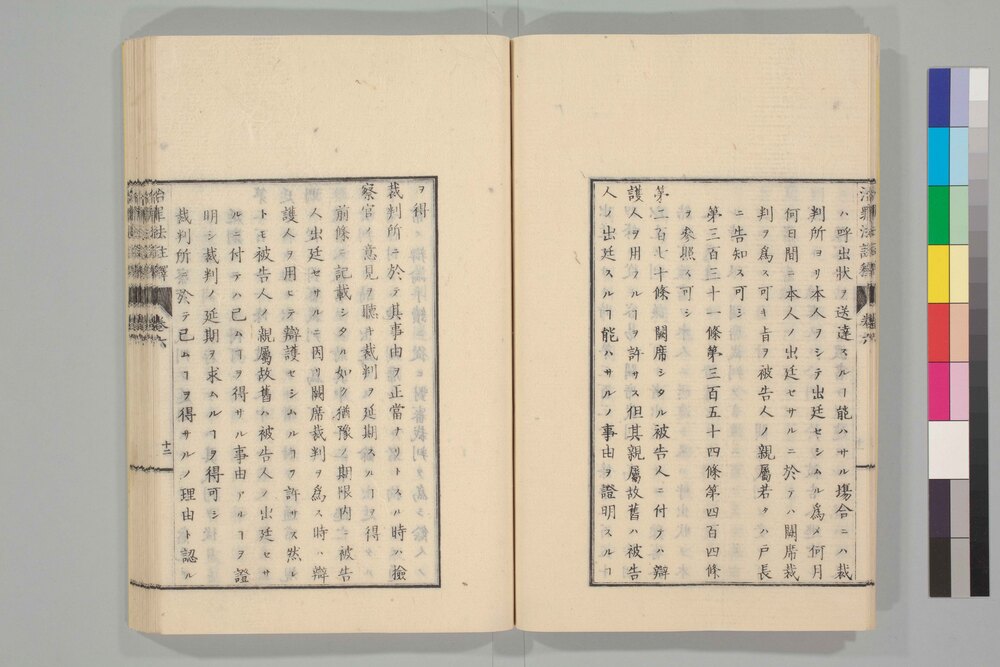 ハ呼出狀ヲ送達スルヿ能ハサル塲合ニハ裁
判所ヨリ本人ヲシテ出廷セシムル爲メ何月
何日間ニ本人ノ出廷セサルニ於テハ闕席裁
判ヲ爲ス可キ旨ヲ被告人ノ親屬若クハ戸長
ニ告知ス可シ
第三百三十一條第三百五十四條第四百四條
ヲ參照ス可シ
第二百七十條 闕席シタル被告人ニ付テハ辯
護人ヲ用フルヿヲ許サス但其親屬故舊ハ被告
人ノ出廷スルヿ能ハサルノ事由ヲ證明スルヿ
ヲ得
裁判所ニ於テ其事由ヲ正當ナリトスル時ハ檢
察官ノ意見ヲ聽キ裁判ヲ延期スルヿヲ得
前條ニ記載シタル如ク猶豫ノ期限内被告
人出廷セサルニ因リ闕席裁判ヲ爲ス時ハ辯
護人ヲ用ヒテ辯護セシムルヿヲ許サス然レ
トモ被告人ノ親屬故舊ハ被告人ノ出廷セサ
ルニ付テハ已ムヿヲ得サル事由アルヿヲ證
明シ裁判ノ延期ヲ求ムルヿヲ得可シ
裁判所ニ於テ已ムヿヲ得サルノ理由ト認ル
治罪法註釋 卷六 十二